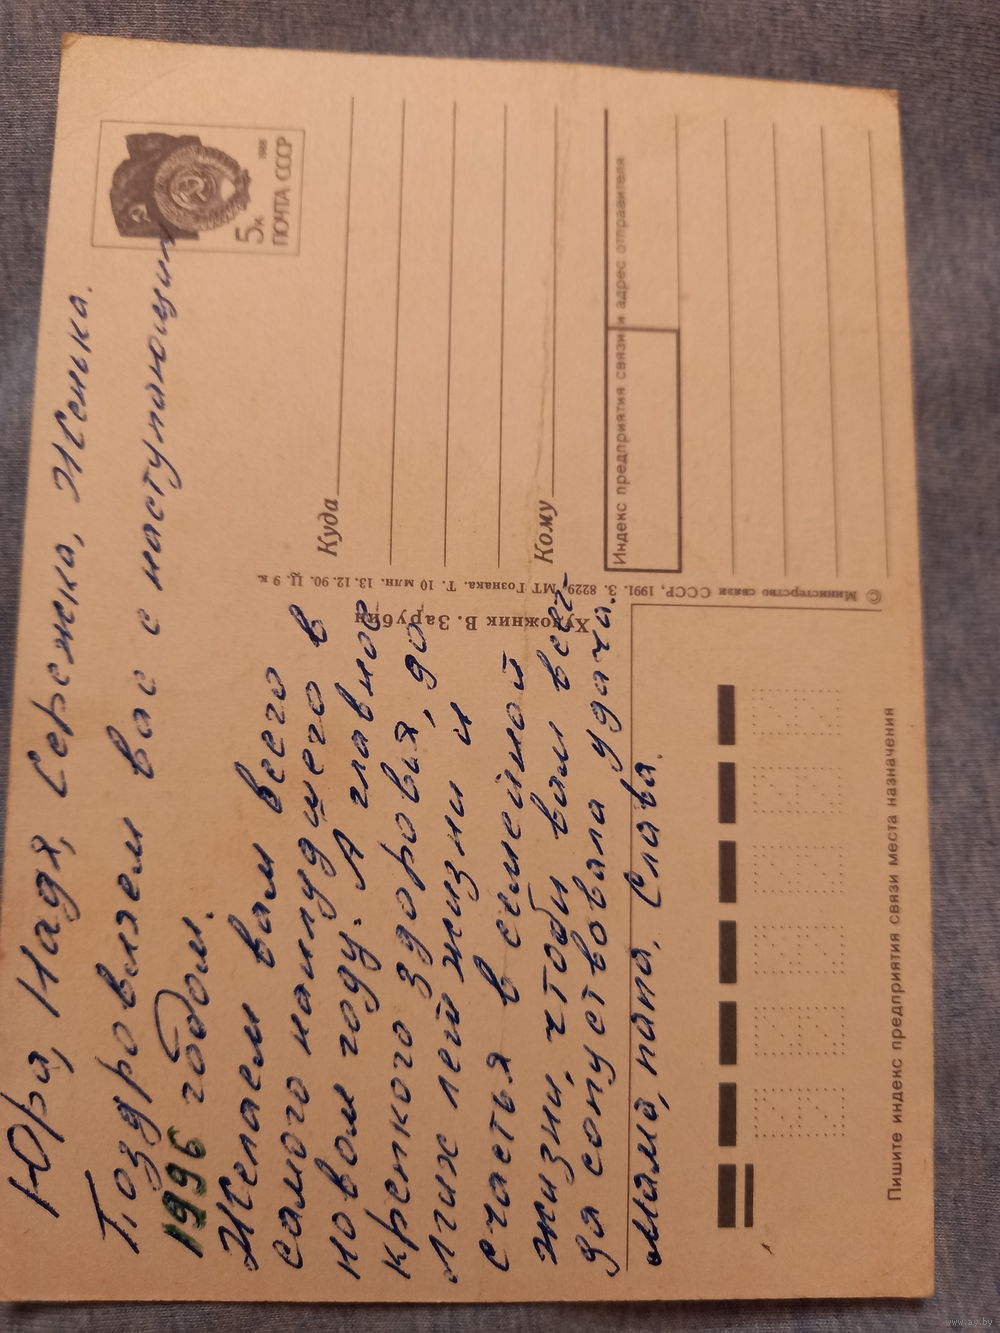 Юра, Надя, Сережка, Женька.
Поздровляем вас с наступающим
1996 годом.
Желаем вам всего
самого наилудшего в
новом году. А главное
крепкого здоровья, до
лгих лет жизни и
счастья в семейной
жизни, чтобы вам всег-
да сопуствовала удача.
Мама, папа, Слава.
5к
1988
ПОЧТА СССР
Куда
Кому
Индекс предприятия связи и адрес отправителя
© Министерство связи СССР, 1991. З. 8229. МТ Гознака. Т. 10 млн. 13.12.90. Ц. 9 к
Художник В. Зарубин
Пишите индекс предприятия связи места назначения
www.ay.by